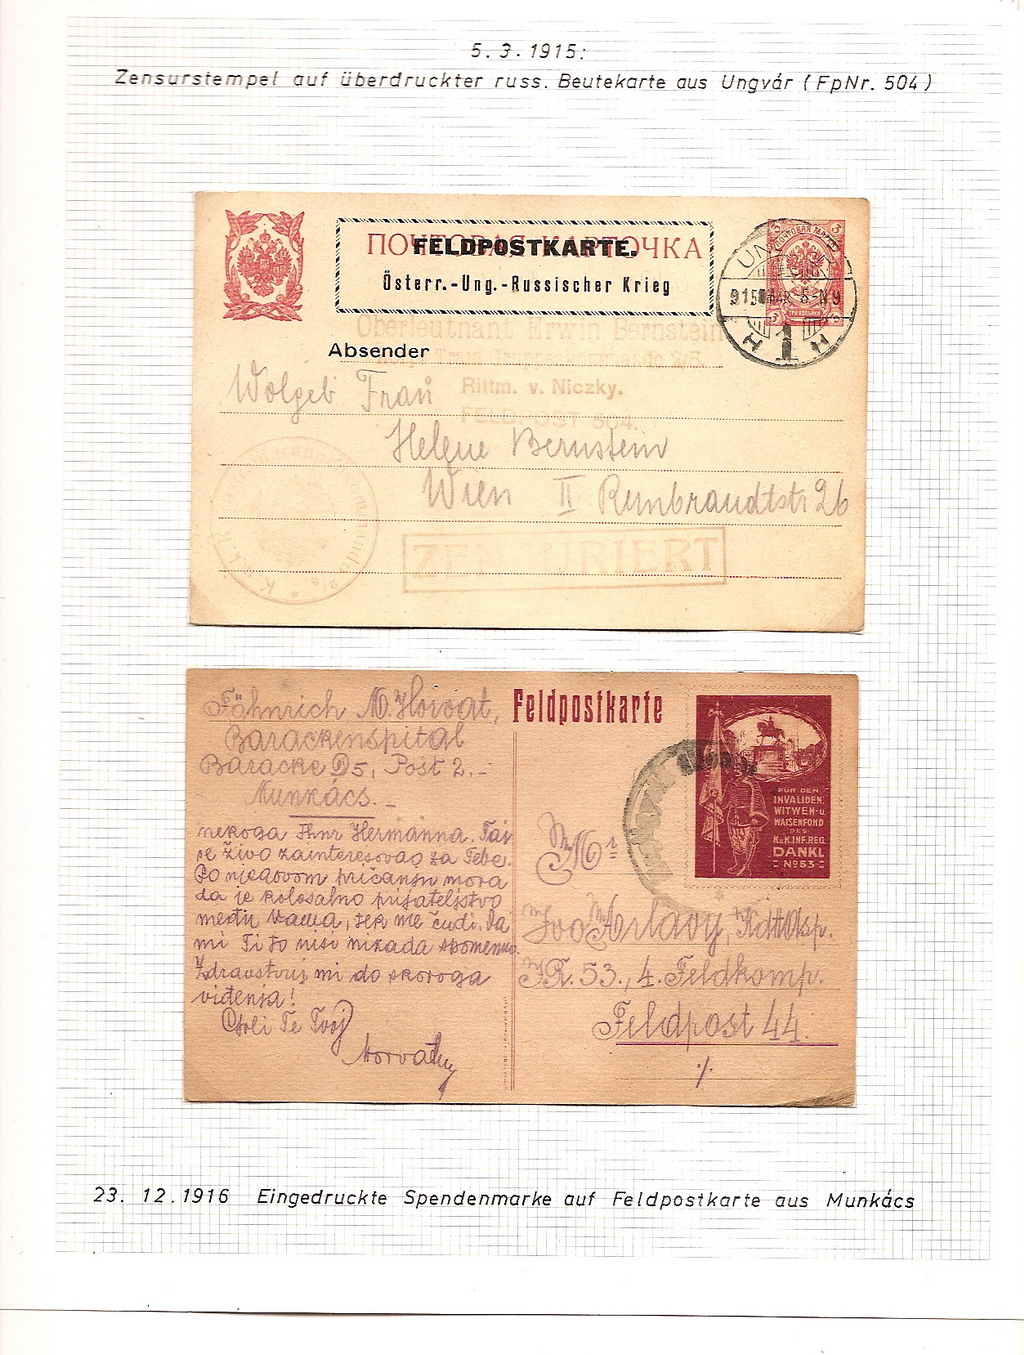 5. 3. 1915:
Zensurstempel auf überdruckter russ. Beutekarte aus Ungvár (FpNr. 504)
ПОЧТОВАЯ КАРТОЧКА
FELDPOSTKARTE.
Österr.-Ung.-Russischer Krieg
915 5-N9
1
Oberleutnant Erwin Bernstein
Absender
Rittm. v. Niczky.
FELDPOST 504.
Wolgeb Frau
Helene Bernstein
Wien II Rembrandtstr 26
ZENSURIERT
Fähnrich M. Horvat,
Barackenspital
Baracke D5, Post 2.-
Munkács.-
nekoga Fhnr Hermanna. Taj
se živo zainteresovao za Tebe.
Po njegovom pričanju mora
da je kolosalno prijateljstvo
među vama, tek me čudi, da
mi Ti to nisi nikada spomenuo.
Zdravstvuj mi do skoroga
viđenja!
Voli Te Tvoj
Horvat
Feldpostkarte
FÜR DEN
INVALIDEN:
WITWEN-u.
WAISENFOND
DES
K.u.K.INF.REG.
DANKL
No 53
Ivo Arlavy, Kdtasp.
IR. 53., 4. Feldkomp.
Feldpost 44.
./.
23. 12. 1916 Eingedruckte Spendenmarke auf Feldpostkarte aus Munkács